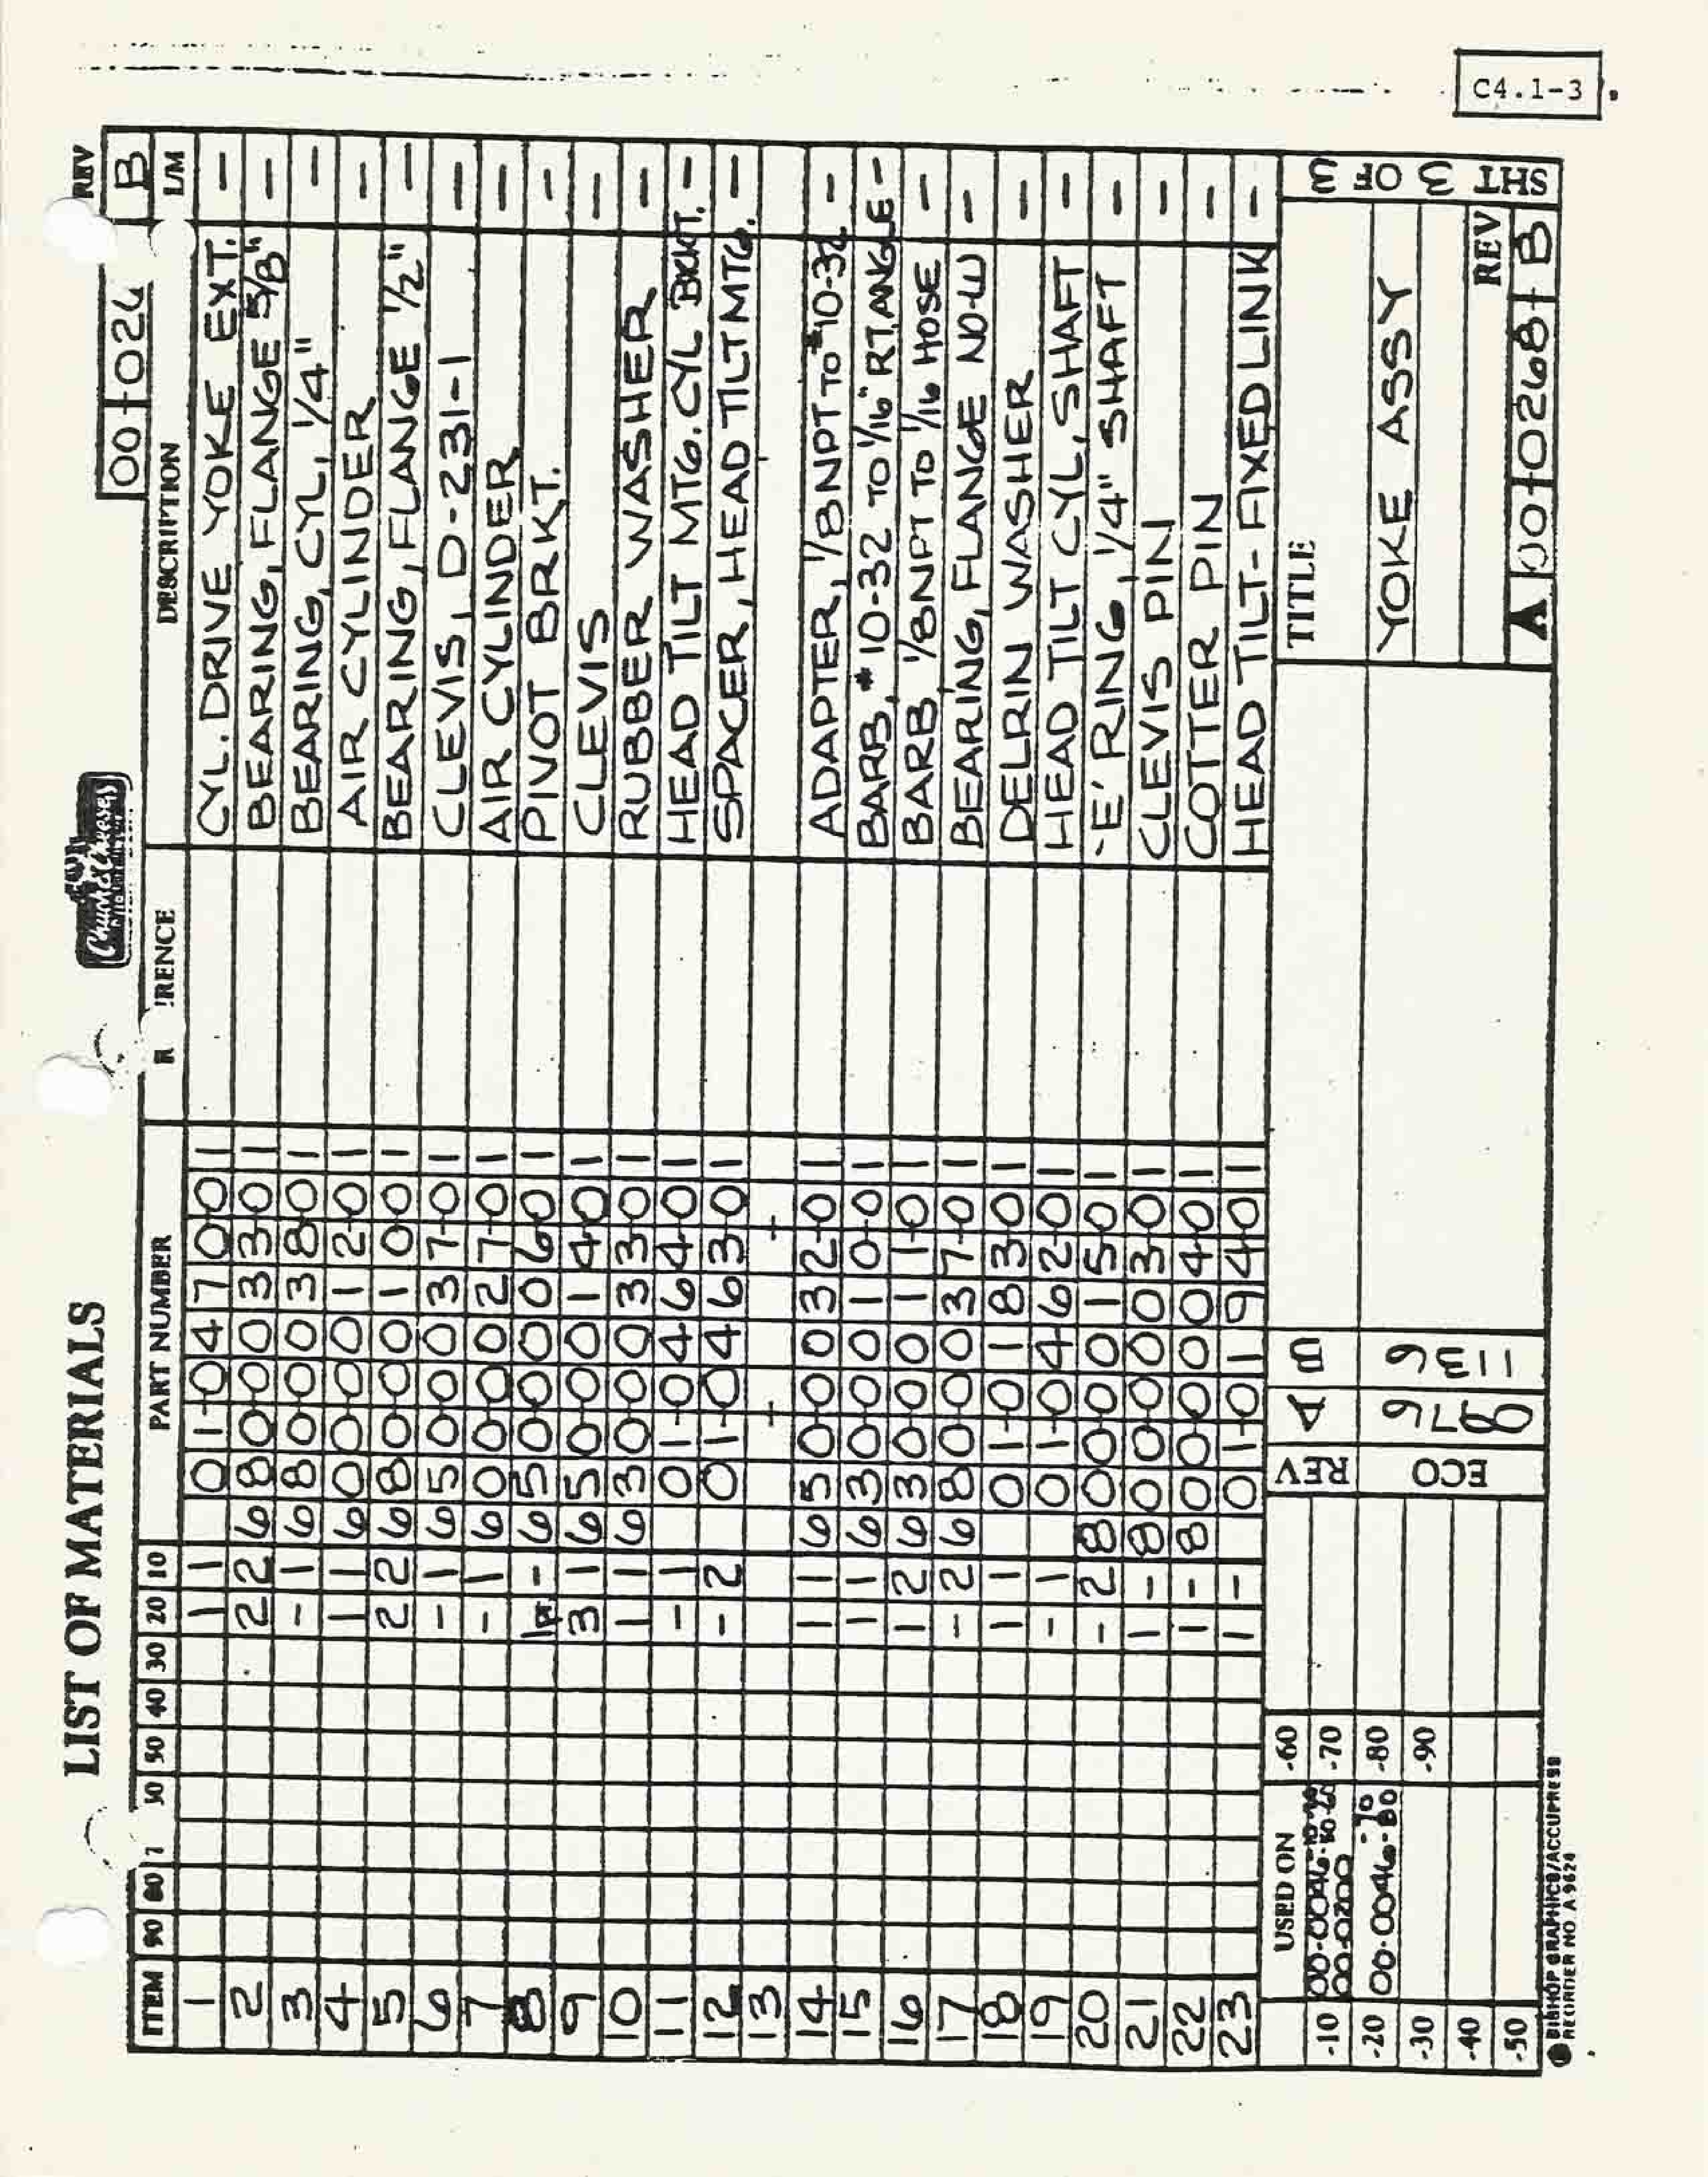 C4.1-3
LIST OF MATERIALS
00-1026
REV
B
ITEM 90 80 7 50 40 30 20 10 PART NUMBER R RENCE DESCRIPTION L/M
1 1 1 01-0470-01 CYL. DRIVE YOKE EXT. -
2 2 2 680-0033-01 BEARING, FLANGE 5/8" -
3 - 1 680-0038-01 BEARING, CYL, 1/4" -
4 1 1 600-0012-01 AIR CYLINDER -
5 2 2 680-0010-01 BEARING, FLANGE 1/2" -
6 - 1 650-0037-01 CLEVIS, D-231-1 -
7 - 1 600-0027-01 AIR CYLINDER -
8 - 650-0006-01 PIVOT BRKT. -
9 3 1 650-0014-01 CLEVIS -
10 1 1 630-0033-01 RUBBER WASHER -
11 - 1 01-0464-01 HEAD TILT MTG. CYL BKKT. -
12 - 2 01-0463-01 SPACER, HEAD TILT MTG. -
13
14 1 1 650-0032-01 ADAPTER, 1/8NPT TO #10-32 -
15 1 1 630-0010-01 BARB, #10-32 TO 1/16" RT.ANGLE -
16 1 2 630-0011-01 BARB 1/8NPT TO 1/16 HOSE -
17 - 2 680-0037-01 BEARING, FLANGE NO-LU -
18 1 1 01-0183-01 DELRIN WASHER -
19 - 1 01-0462-01 HEAD TILT CYL, SHAFT -
20 - 2 800-0015-01 'E' RING, 1/4" SHAFT -
21 1 - 800-0003-01 CLEVIS PIN -
22 1 - 800-0004-01 COTTER PIN -
23 1 - 01-0194-01 HEAD TILT-FIXED LINK -
USED ON
-10 -60
-20 00-0046-70 -80 -70
-30 -80
-40 -90
-50
REV A B
ECO 0976 1136
TITLE
YOKE ASSY
REV
A 00-0268- B
SHT 3 OF 3
BISHOP GRAPHICS/ACCUPRESS
REORDER NO. A 9624